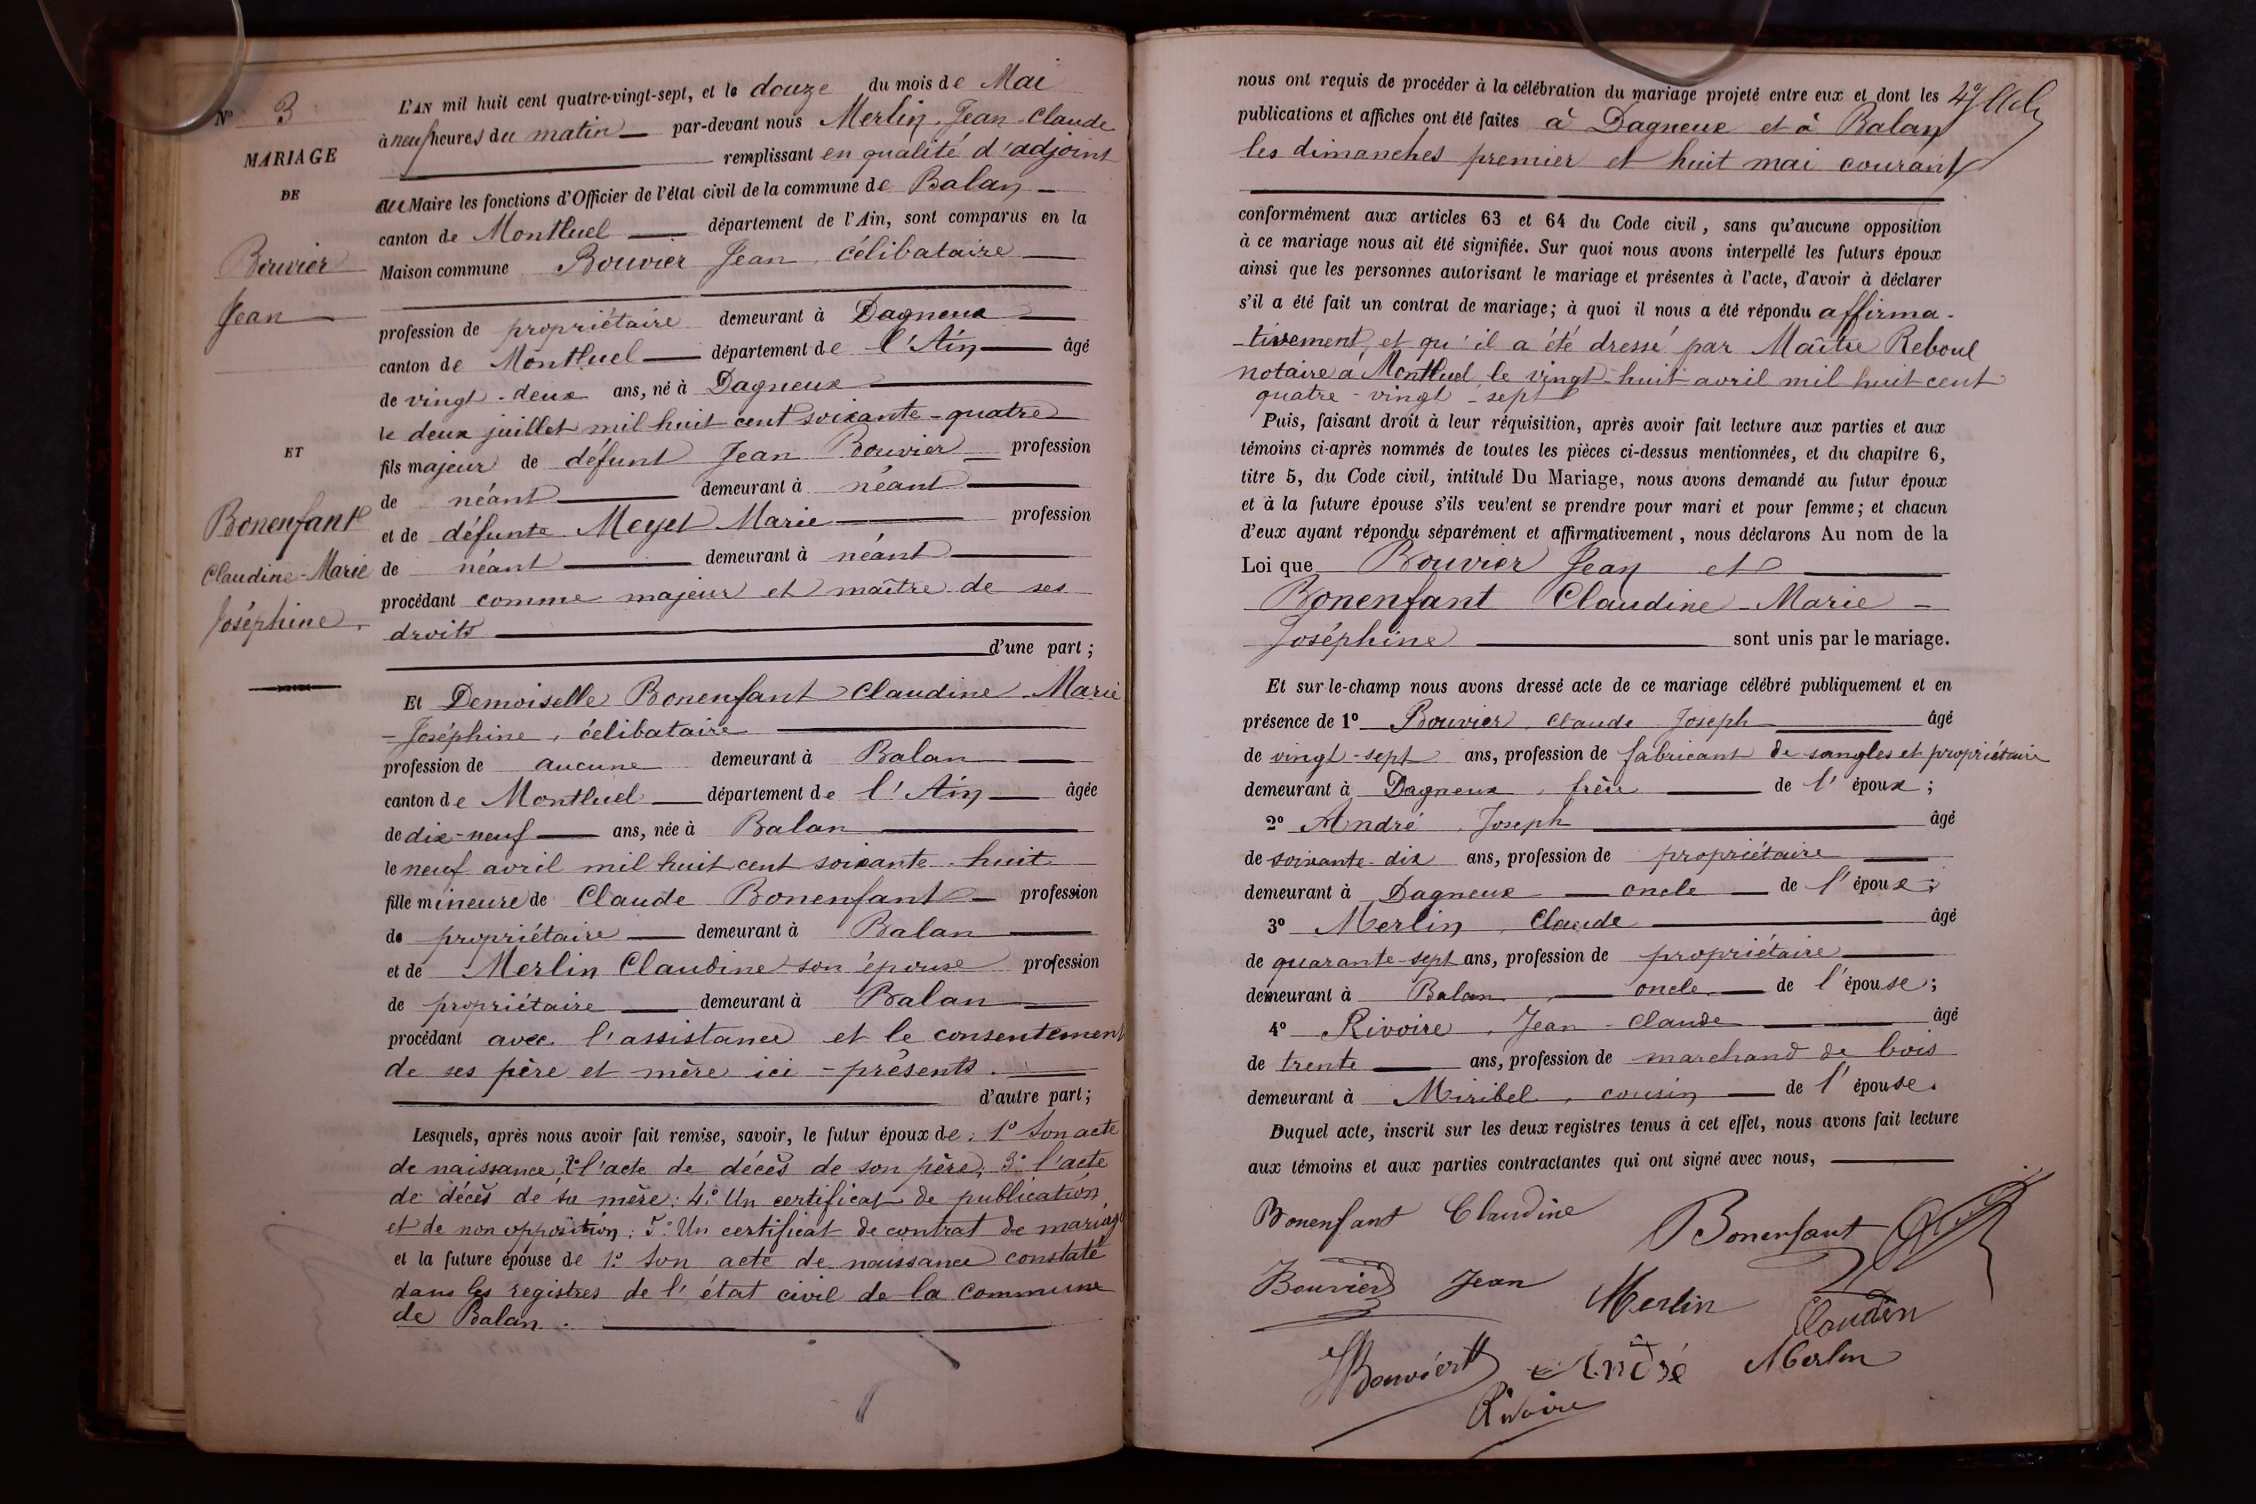 N° 3
MARIAGE
DE
Bouvier
Jean
ET
Bonenfant
Claudine-Marie
Joséphine.
L'AN mil huit cent quatre-vingt-sept, et le douze du mois de Mai
à neuf heures du matin par-devant nous Merlin, Jean-Claude
remplissant en qualité d'adjoint
au Maire les fonctions d'Officier de l'état civil de la commune de Balan
canton de Montluel département de l'Ain, sont comparus en la
Maison commune Bouvier Jean, célibataire
profession de propriétaire demeurant à Dagneux
canton de Montluel département de l'Ain âgé
de vingt-deux ans, né à Dagneux
le deux juillet mil huit cent soixante-quatre
fils majeur de défunt Jean Bouvier profession
de néant demeurant à néant
et de défunte Meyet Marie profession
de néant demeurant à néant
procédant comme majeur et maître de ses
droits
d'une part ;
Et Demoiselle Bonenfant Claudine-Marie
-Joséphine, célibataire
profession de aucune demeurant à Balan
canton de Montluel département de l'Ain âgée
de dix-neuf ans, née à Balan
le neuf avril mil huit cent soixante-huit
fille mineure de Claude Bonenfant profession
de propriétaire demeurant à Balan
et de Merlin Claudine son épouse profession
de propriétaire demeurant à Balan
procédant avec l'assistance et le consentement
de ses père et mère ici-présents.
d'autre part ;
Lesquels, après nous avoir fait remise, savoir, le futur époux de : 1° Son acte
de naissance, 2° l'acte de décès de son père, 3° l'acte
de décès de sa mère : 4° Un certificat de publication
et de non opposition ; 5° Un certificat de contrat de mariage
et la future épouse de 1° Son acte de naissance constaté
dans les registres de l'état civil de la commune
de Balan.
nous ont requis de procéder à la célébration du mariage projeté entre eux et dont les
publications et affiches ont été faites à Dagneux et à Balan
les dimanches premier et huit mai courant
conformément aux articles 63 et 64 du Code civil, sans qu'aucune opposition
à ce mariage nous ait été signifiée. Sur quoi nous avons interpellé les futurs époux
ainsi que les personnes autorisant le mariage et présentes à l'acte, d'avoir à déclarer
s'il a été fait un contrat de mariage ; à quoi il nous a été répondu affirma-
-tivement, et qu'il a été dressé par Maître Reboul
notaire a Montluel le vingt-huit avril mil huit cent
quatre-vingt-sept
Puis, faisant droit à leur réquisition, après avoir fait lecture aux parties et aux
témoins ci-après nommés de toutes les pièces ci-dessus mentionnées, et du chapitre 6,
titre 5, du Code civil, intitulé Du Mariage, nous avons demandé au futur époux
et à la future épouse s'ils veulent se prendre pour mari et pour femme ; et chacun
d'eux ayant répondu séparément et affirmativement, nous déclarons Au nom de la
Loi que Bouvier Jean et
Bonenfant Claudine-Marie-
Joséphine sont unis par le mariage.
Et sur-le-champ nous avons dressé acte de ce mariage célébré publiquement et en
présence de 1° Bouvier, Claude Joseph âgé
de vingt-sept ans, profession de fabricant de sangles et propriétaire
demeurant à Dagneux, frère de l'époux ;
2° André, Joseph âgé
de soixante-dix ans, profession de propriétaire
demeurant à Dagneux oncle de l'époux ;
3° Merlin, Claude âgé
de quarante-sept ans, profession de propriétaire
demeurant à Balan, oncle de l'épouse ;
4° Rivoire, Jean-Claude âgé
de trente ans, profession de marchand de bois
demeurant à Miribel, cousin de l'épouse.
Duquel acte, inscrit sur les deux registres tenus à cet effet, nous avons fait lecture
aux témoins et aux parties contractantes qui ont signé avec nous,
Bonenfant Claudine
Bonenfant
Bouvier Jean
Merlin
Claudin
Bouvier
André
Merlin
Rivoire